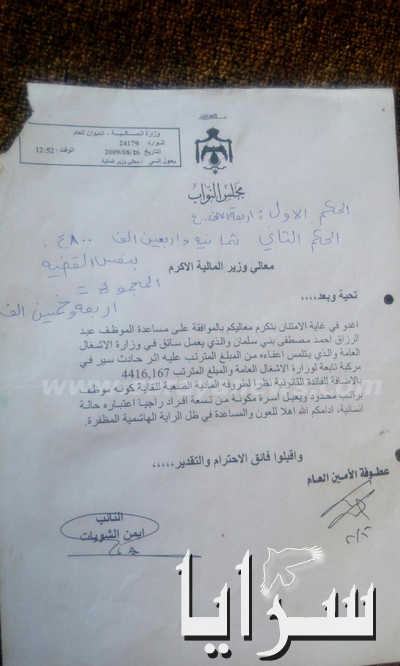 وزارة المالية - الديوان العام
الوارد: 24179
التاريخ 2009/08/16 الوقت: 12:52
يحول إلى : معالي وزير المالية
مجلس النواب
الحكم الاول : اربعة الاف
الحكم الثاني ثمانية واربعين الف ٤٨٠٠٠
معالي وزير المالية الاكرم
بنفس القضيه
المجموع =
اربعة وخمسين الف
تحية وبعد،،،،
اغدو في غاية الامتنان بتكرم معاليكم بالموافقة على مساعدة الموظف عبد
الرزاق احمد مصطفى بني سلمان والذي يعمل سائق في وزارة الاشغال
العامة والذي يلتمس اعفاءه من المبلغ المترتب عليه اثر حادث سير في
مركبة تابعة لوزارة الاشغال العامة والمبلغ المترتب 4416,167
بالاضافة للفائدة القانونية نظرا لظروفه المادية الصعبة للغاية كونه موظف
براتب محدود ويعيل أسرة مكونة من تسعة افراد راجيا اعتباره حالة
انسانية، ادامكم الله اهلا للعون والمساعدة في ظل الراية الهاشمية المظفرة.
واقبلوا فائق الاحترام والتقدير،،،،،
عطوفة الأمين العام
النائب
ايمن الشويات
سرايا